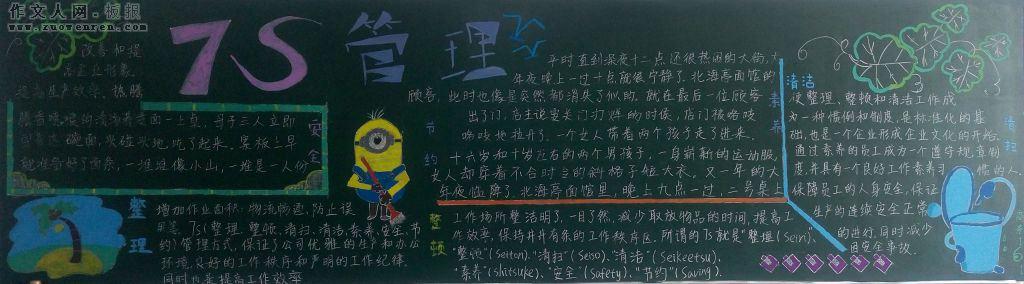 作文人网·板报
www.zuowenren.com
7S管理
改善和提
高企业形象
促成生产效率、
腾着喷喷的清汤荞麦面一上桌，母子三人立即
围着这碗面，头碰头地吃了起来。
就准备好了面条，一堆堆像小山，一堆是一人份
安全
整理
增加作业面积：物流畅通、防止误
用等。7S(整理、整顿、清扫、清洁、素养、安全、节
约)管理方式，保证了公司优雅的生产和办公
环境，良好的工作秩序和严明的工作纪律，
同时也是提高工作效率
节约
平时直到深夜十二点还很热闹的大街，大
年夜晚上一过十点就很宁静了。北海亭面馆的
顾客，此时也像是突然都消失了似的。就在最后一位顾客
出了门，店主说要关门打烊的时候，店门被咯吱
咯吱地拉开了。一个女人带着两个孩子走了进来。
十六岁和十岁左右的两个男孩子，一身崭新的运动服，
女人却穿着不合时令的斜格子短大衣。又一年的大
年夜临降了。北海亭面馆里，晚上九点一过，二号桌上
素养
整顿
工作场所整洁明了，一目了然，减少取放物品的时间，提高工
作效率，保持井井有条的工作秩序区。所谓的7S就是"整理"(Seiri)、
"整顿"(Seiton)、"清扫"(Seiso)、"清洁"(Seikeetsu)、
"素养"(shitsuke)、"安全"(Safety)、"节约"(Saving)。
清洁
使整理、整顿和清洁工作成
为一种惯例和制度，是标准化的基
础，也是一个企业形成企业文化的开始。
通过素养的员工成为一个遵守规章制
度，并具有一个良好工作素养习惯的人。
保障员工的人身安全，保证
生产的连续安全正常
的进行，同时减少
因安全事故
清扫